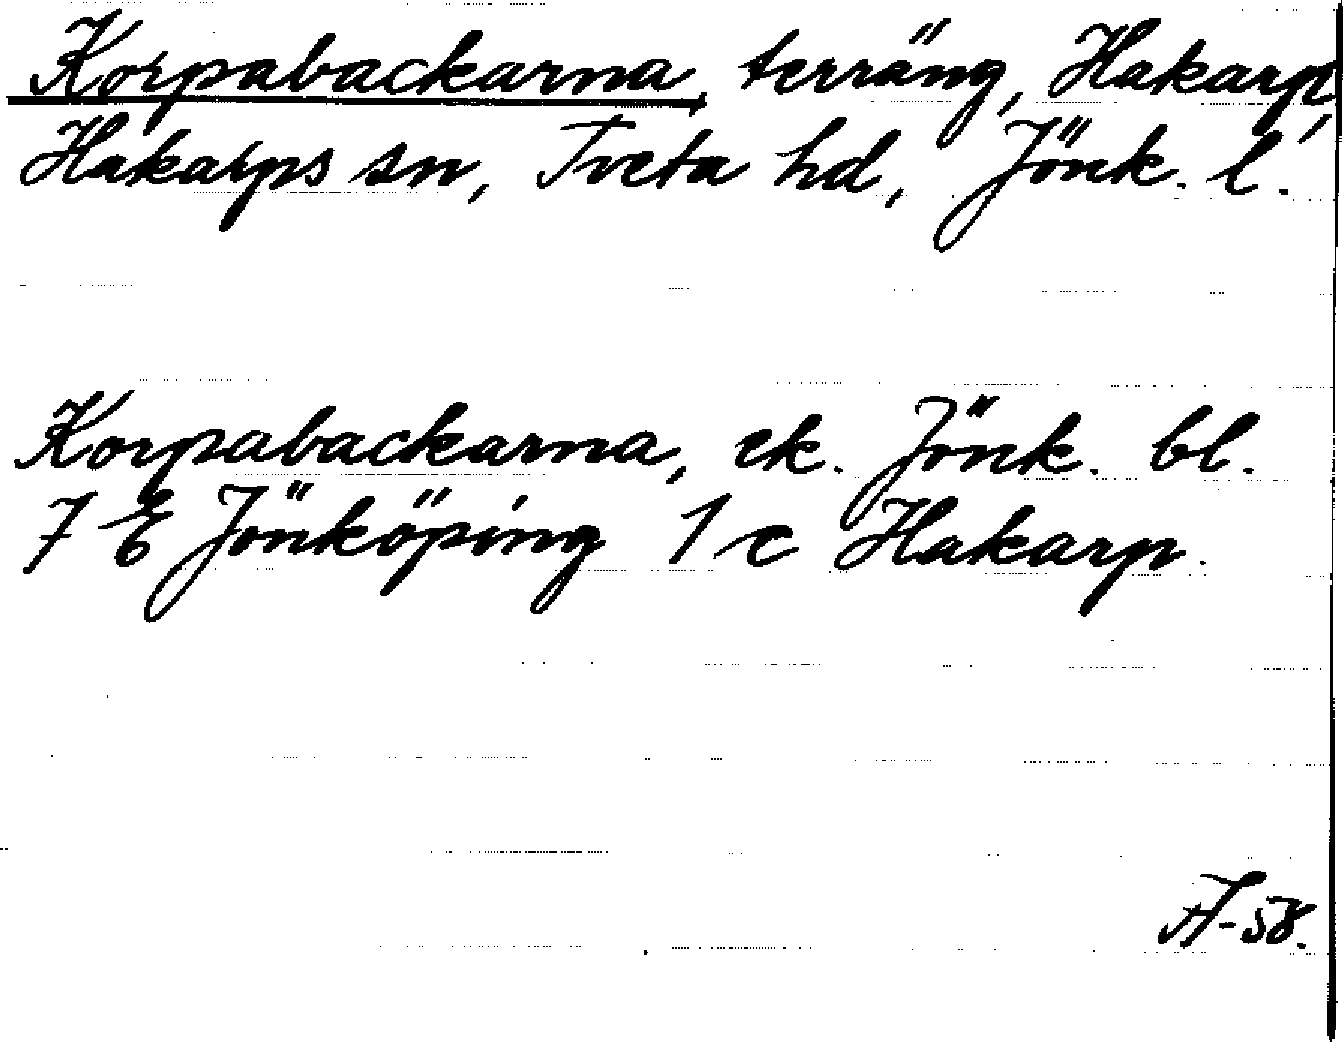 Korpabackarna, terräng, Hakarp,
Hakarps sn, Tveta hd, Jönk. l.
Korpabackarna, ek. Jönk. bl.
7 E Jönköping 1 c Hakarp.